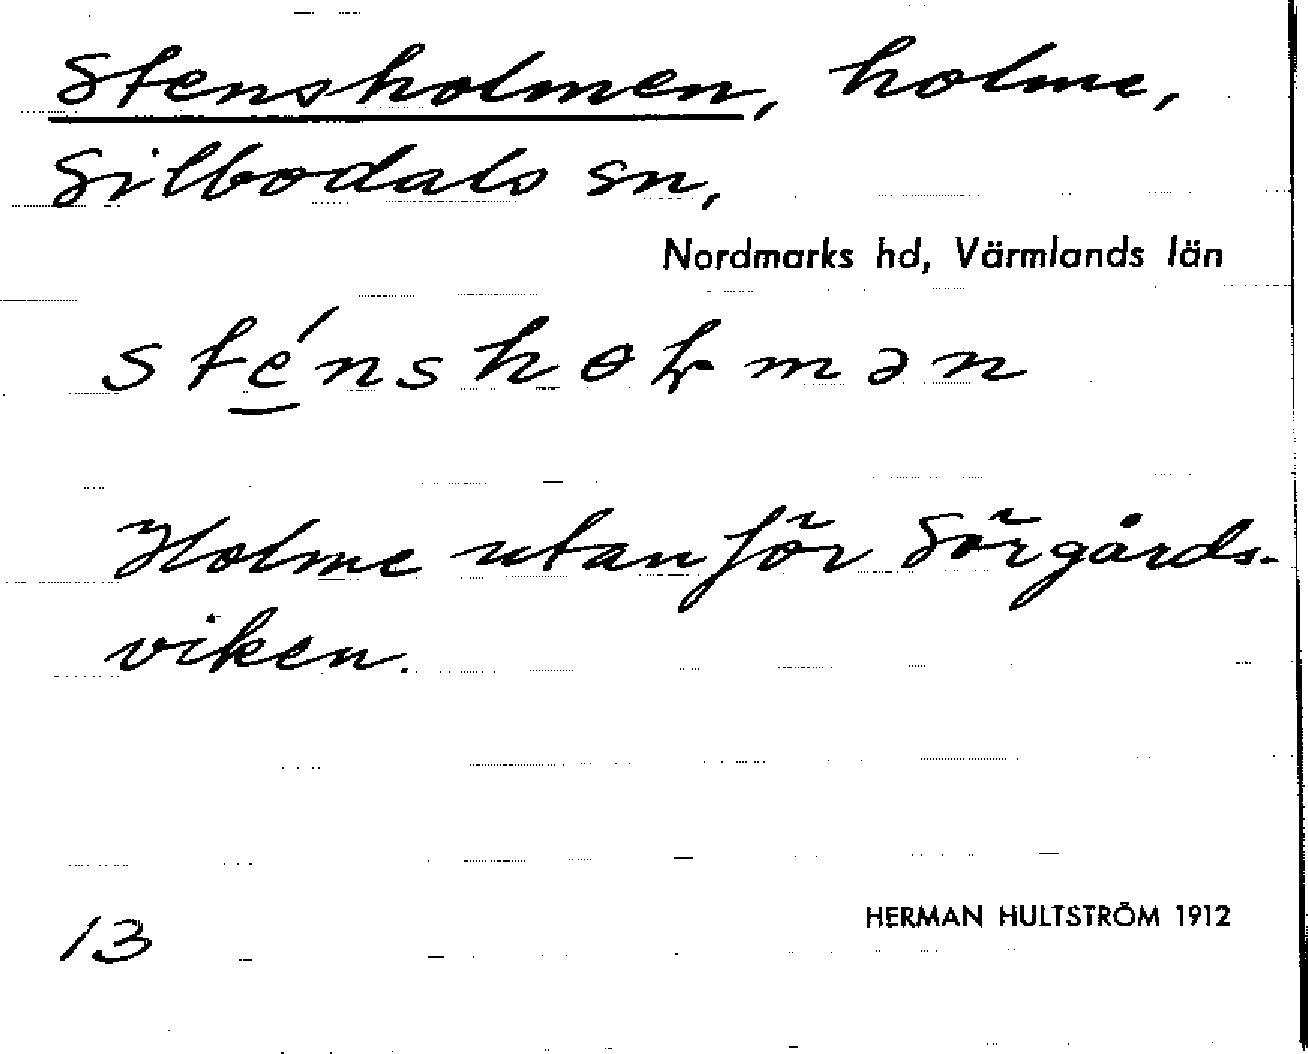 Stensholmen, holme,
Silbodals sn,
Nordmarks hd, Värmlands län
sté̠nshɵɫmən
Holme utanför Sörgårds-
viken.
13
HERMAN HULTSTRÖM 1912